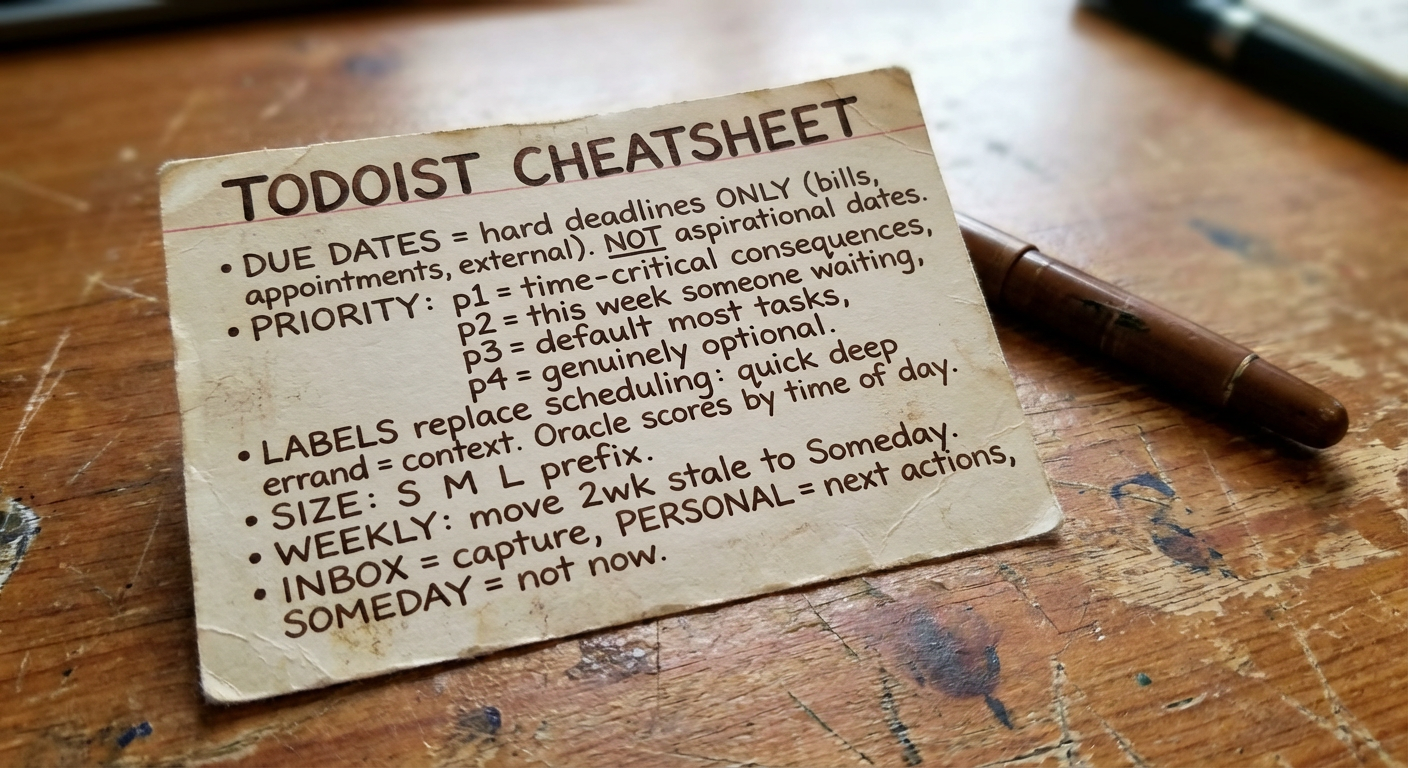 TODOIST CHEATSHEET
• DUE DATES = hard deadlines ONLY (bills,
appointments, external). NOT aspirational dates.
• PRIORITY: p1 = time-critical consequences,
p2 = this week someone waiting,
p3 = default most tasks,
p4 = genuinely optional.
• LABELS replace scheduling: quick deep
errand = context. Oracle scores by time of day.
• SIZE: S M L prefix.
• WEEKLY: move 2wk stale to Someday.
• INBOX = capture, PERSONAL = next actions,
SOMEDAY = not now.